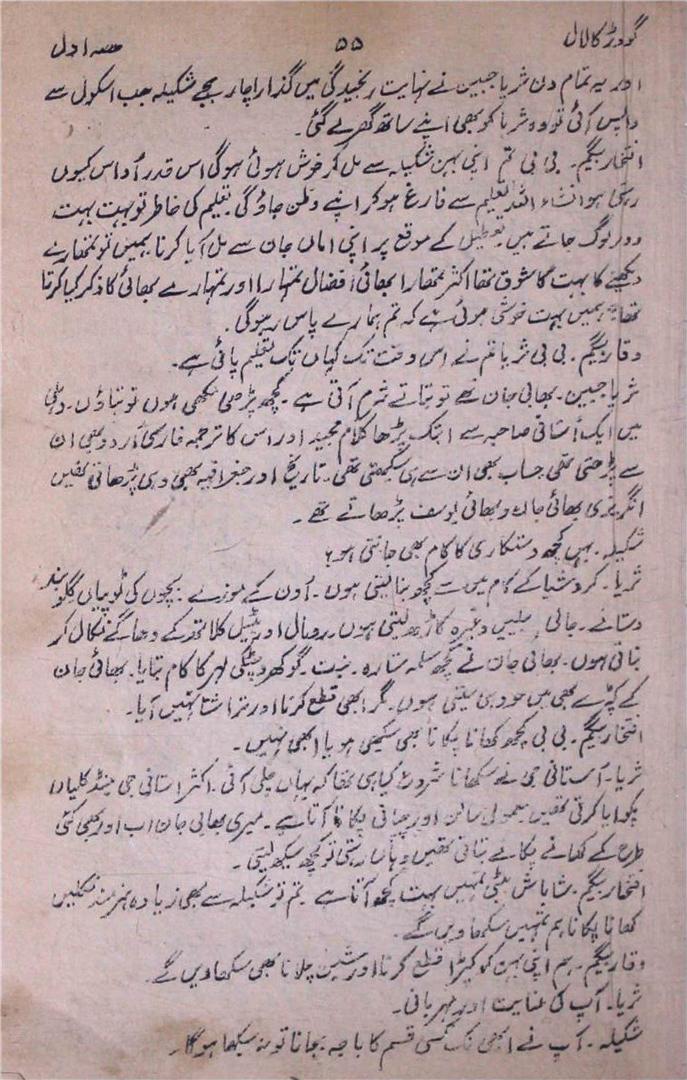 گودڑ کا لال ۵۵ حصہ اول
اور یہ تمام دن ثریا جبین نے نہایت رنجیدگی میں گذارا چار بجے شکیلہ جب اسکول سے
واپس آئی تو وہ ثریا کو بھی اپنے ساتھ گھر لے گئی۔
افتخار بیگم۔ بی بی تم اپنی بہن شکیلہ سے مل کر خوش ہوئی ہوگی اس قدر اداس کیوں
رہتی ہو انشاء اللہ تعلیم سے فارغ ہو کر اپنے وطن جاؤ گی تعلیم کی خاطر تو بہت بہت
دور لوگ جاتے ہیں تعطیل کے موقع پر اپنی اماں جان سے مل آیا کرنا ہمیں تو تمھارے
دیکھنے کا بہت شوق تھا اکثر تمھارا بھائی افضال تمہارا اور تمہارے بھائی کا ذکر کیا کرتا
تھا ہمیں بہت خوشی ہوئی ہے کہ تم ہمارے پاس رہو گی۔
وقار بیگم۔ بی بی ثریا تم نے اس وقت تک کہاں تک تعلیم پائی ہے۔
ثریا جبین۔ بھابی جان مجھے تو بتاتے شرم آتی ہے۔ کچھ پڑھی لکھی ہوں تو بتاؤں۔ دہلی
میں ایک اُستانی صاحبہ سے ابتک پڑھا کلام مجید اور اس کا ترجمہ فارسی اُردو بھی ان
سے پڑھتی تھی حساب بھی ان سے ہی سیکھتی تھی۔ تاریخ اور جغرافیہ بھی وہی پڑھاتی تھیں
انگریزی بھائی جان و بھائی یوسف پڑھاتے تھے۔
شکیلہ۔ بہن کچھ دستکاری کا کام بھی جانتی ہو؟
ثریا۔ کروشیا کے کام میں سے کچھ بنا لیتی ہوں۔ اُون کے موزے بچوں کی ٹوپیاں گلوبند
دستانے۔ جالی بیلیں وغیرہ کاڑھ لیتی ہوں۔ رومال اور ٹیبل کلاتھ کے دھاگے نکال کر
بناتی ہوں۔ بھابی جان نے کچھ سلمہ ستارہ۔ بنت۔ گوکھرو چٹکی لہر کا کام بتایا۔ بھائی جان
کے کپڑے بھی میں خود ہی سیتی ہوں۔ مگر ابھی قطع کرنا اور تراشنا نہیں آیا۔
افتخار بیگم۔ بی بی کچھ کھانا پکانا بھی سیکھی ہو یا ابھی نہیں۔
ثریا۔ اُستانی جی نے سکھانا شروع کیا ہی تھا کہ یہاں چلی آئی۔ اکثر استانی جی ہنڈ کلہیاں
پکوایا کرتی تھیں معمولی سالن اور چپاتی پکانا آتا ہے۔ میری بھابی جان اب اور بھی کئی
طرح کے کھانے پکانے بتاتی تھیں وہاں رہتی تو کچھ سیکھ لیتی۔
افتخار بیگم۔ شاباش بیٹی تمہیں بہت کچھ آتا ہے تم تو شکیلہ سے بھی زیادہ ہنرمند نکلیں
کھانا پکانا ہم تمہیں سکھا دیں گے۔
وقار بیگم۔ ہم اپنی بہن کو کپڑا قطع کرنا اور مشین چلانا بھی سکھا دیں گے۔
ثریا۔ آپ کی عنایت اور مہربانی۔
شکیلہ۔ آپ نے ابھی تک کسی قسم کا باجہ بجانا تو نہ سیکھا ہوگا۔